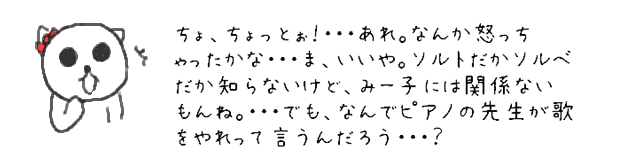 ちょ、ちょっとぉ!・・・あれ。なんか怒っち
ゃったかな・・・ま、いいや。ソルトだかソルベ
だか知らないけど、みー子には関係ない
もんね。・・・でも、なんでピアノの先生が歌
をやれって言うんだろう・・・?